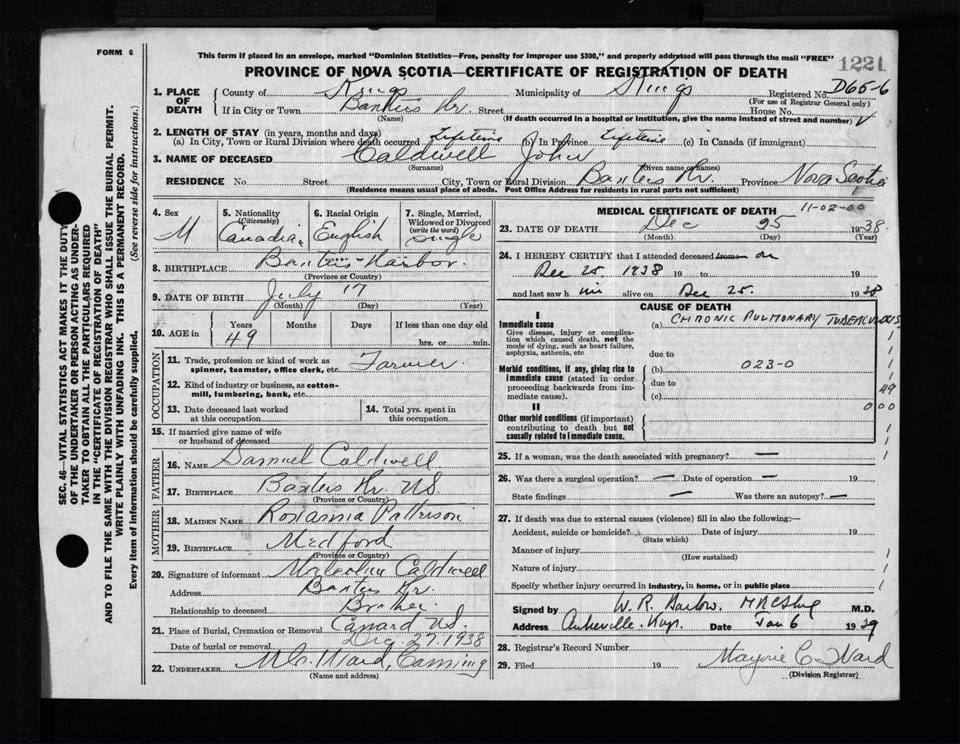 FORM 6
This form if placed in an envelope, marked "Dominion Statistics—Free, penalty for improper use $300," and properly addressed will pass through the mail "FREE"
1221
PROVINCE OF NOVA SCOTIA—CERTIFICATE OF REGISTRATION OF DEATH
1. PLACE OF DEATH
County of Kings Municipality of Kings Registered No. D65-6
(For use of Registrar General only)
If in City or Town Baxters Hr. Street House No.
(Name) (If death occurred in a hospital or institution, give the name instead of street and number)
2. LENGTH OF STAY (in years, months and days)
(a) In City, Town or Rural Division where death occurred Lifetime (b) In Province Lifetime (c) In Canada (if immigrant)
3. NAME OF DECEASED Caldwell John
(Surname) (Given name or names)
RESIDENCE No. Street City, Town or Rural Division Baxters Hr. Province Nova Scotia
(Residence means usual place of abode. Post Office Address for residents in rural parts not sufficient)
SEC. 46—VITAL STATISTICS ACT MAKES IT THE DUTY
OF THE UNDERTAKER OR PERSON ACTING AS UNDER-
TAKER TO OBTAIN ALL THE PARTICULARS REQUIRED
IN THE "CERTIFICATE OF REGISTRATION OF DEATH"
AND TO FILE THE SAME WITH THE DIVISION REGISTRAR WHO SHALL ISSUE THE BURIAL PERMIT.
WRITE PLAINLY WITH UNFADING INK. THIS IS A PERMANENT RECORD.
Every item of information should be carefully supplied. (See reverse side for instructions.)
4. Sex M
5. Nationality (Citizenship) Canadian
6. Racial Origin English
7. Single, Married, Widowed or Divorced (write the word) Single
8. BIRTHPLACE Baxters Harbor.
(Province or Country)
9. DATE OF BIRTH July 17
(Month) (Day) (Year)
10. AGE in Years Months Days If less than one day old
49 hrs. or min.
OCCUPATION
11. Trade, profession or kind of work as spinner, teamster, office clerk, etc. Farmer
12. Kind of industry or business, as cotton-mill, lumbering, bank, etc.
13. Date deceased last worked at this occupation
14. Total yrs. spent in this occupation
15. If married give name of wife or husband of deceased
FATHER
16. NAME Samuel Caldwell
17. BIRTHPLACE Baxters Hr. N.S.
(Province or Country)
MOTHER
18. MAIDEN NAME Patterson
19. BIRTHPLACE Medford
(Province or Country)
20. Signature of informant Malcolm Caldwell
Address Baxters Hr.
Relationship to deceased Brother
21. Place of Burial, Cremation or Removal Canard N.S.
Date of burial or removal Dec. 27, 1938
22. UNDERTAKER Ward, Canning
(Name and address)
MEDICAL CERTIFICATE OF DEATH 11-02-00
23. DATE OF DEATH Dec 25 1938
(Month) (Day) (Year)
24. I HEREBY CERTIFY that I attended deceased from on
Dec 25 1938 19 to 19
and last saw him alive on Dec 25. 1938
CAUSE OF DEATH
I
Immediate cause
Give disease, injury or complication which caused death, not the mode of dying, such as heart failure, asphyxia, asthenia, etc
(a) CHRONIC PULMONARY TUBERCULOSIS
due to
Morbid conditions, if any, giving rise to immediate cause (stated in order proceeding backwards from immediate cause).
(b) 023-0
due to
49
(c)
000
II
Other morbid conditions (if important) contributing to death but not causally related to immediate cause.
25. If a woman, was the death associated with pregnancy? —
26. Was there a surgical operation? — Date of operation — 19
State findings — Was there an autopsy? —
27. If death was due to external causes (violence) fill in also the following:—
Accident, suicide or homicide? Date of injury 19
(State which)
Manner of injury
(How sustained)
Nature of injury
Specify whether injury occurred in industry, in home, or in public place
Signed by W. R. Barlow. M.D.
Address Date Jan 6 1939
28. Registrar's Record Number
29. Filed 19 Marjorie C. Ward
(Division Registrar)